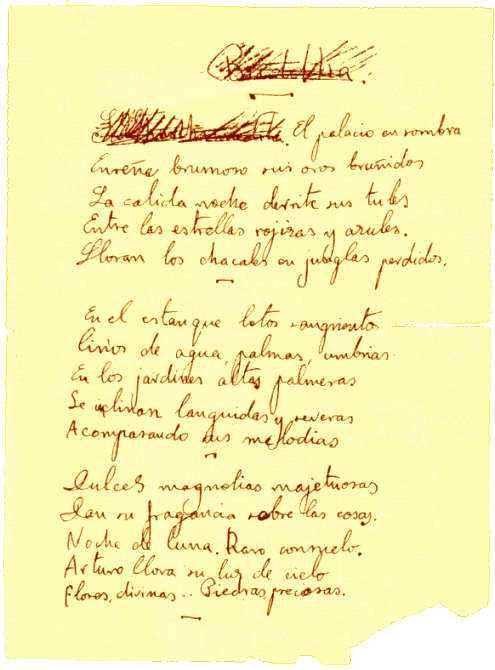 El palacio en sombra
Enseña brumoso sus oros bruñidos
La calida noche derrite sus tules
Entre las estrellas rojizas y azules.
Lloran los chacales en junglas perdidos.
En el estanque lotos sangrientos
lirios de agua, palmas, umbrias.
En los jardines altas palmeras
Se inclinan languidas y severas
Acompasando sus melodias
Dulces magnolias majetuosas
Dan su fragancia sobre las cosas.
Noche de luna. Raro consuelo.
Arturo llora su luz de cielo
Flores, divinas.. Piedras, preciosas.